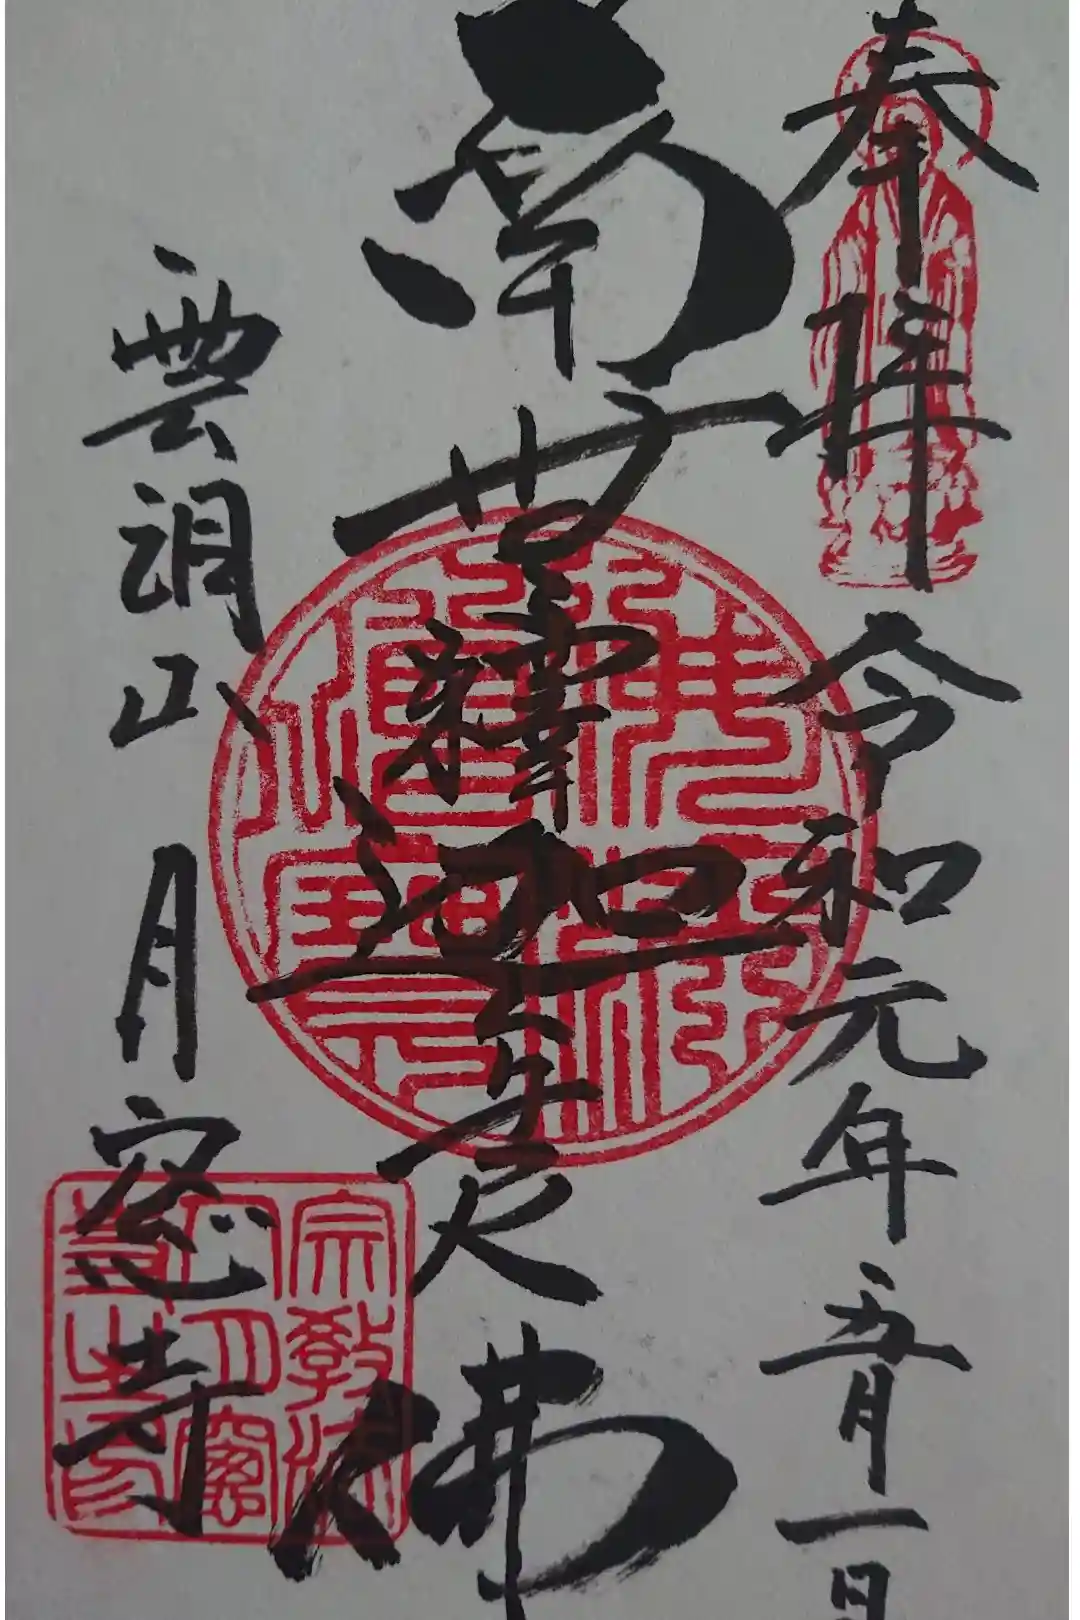 奉拝 令和元年五月一日
南無釋迦牟尼佛
雲洞山 月窓寺
佛法僧寶
宗教法